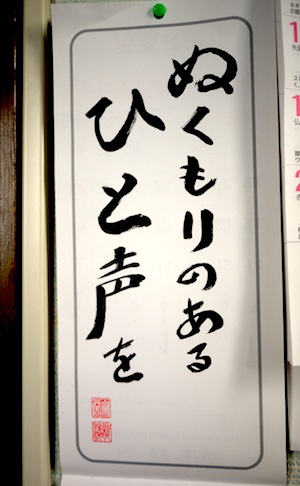 ぬくもりのある
ひと声を